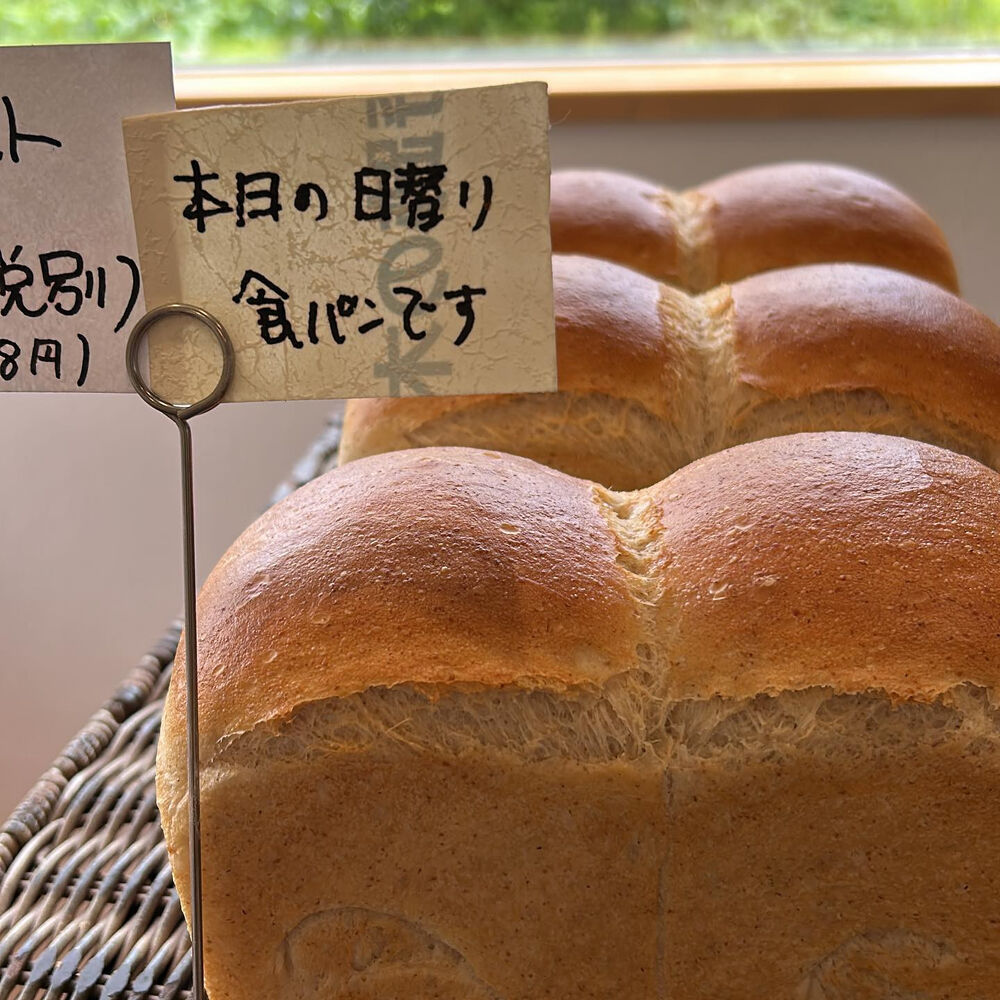 ト
税別)
8円)
本日の日替り
食パンです